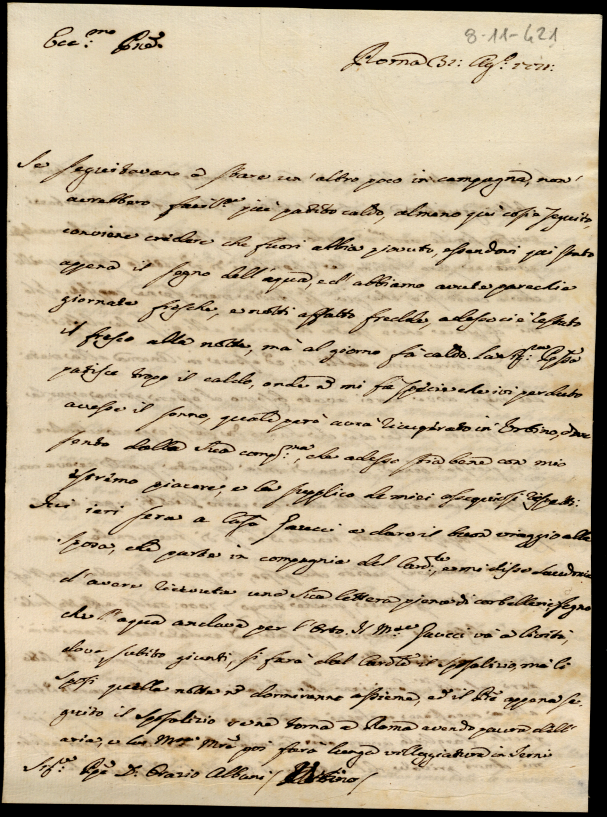 8-11-421
Ecc.mo Pne.
Roma 31: Ag.o
Se seguitavano à stare un' altro poco in campagna, non'
averebbero quì patito caldo, almeno quì così è seguito,
conviene credere che fuori abbia piovuto, essendovi quì stato
appena il segno dell' aqua, ed' abbiamo avute parechie
giornate fresche, e notti affatto fredde, adesso ci è restato
il fresco alla notte, mà al giorno fà caldo. La
patisce tropo il caldo, onde ñ mi fà specie che ivi perduto
avesse il sonno, quale però avrà ricuperato in Urbino,
sento dalla sua che adesso stia bene con mio
estremo piacere, e la supplico de miei ossequiosi rispetti:
Fui ieri sera a Casa Gavecci a dare il buon viaggio alla
sposa, che parte in compagnia del Card.le, e mi disse
d'avere ricevuta una sua lettera piena di corbellerie, segno
che l'aqua andava per l'Orto. Il M.se Gavecci và a
dove subito giunti, si farà dal Card.le il sposalizio, mà li
sposi quella notte ñ dormiranno assieme, ed il appena se-
guito il sposalizio se ne torna a Roma avendo paura dell'
aria, e la poi farà lunga villeggiatura in Terni
Sig.r Pñpe D. Orazio Albani / Urbino /